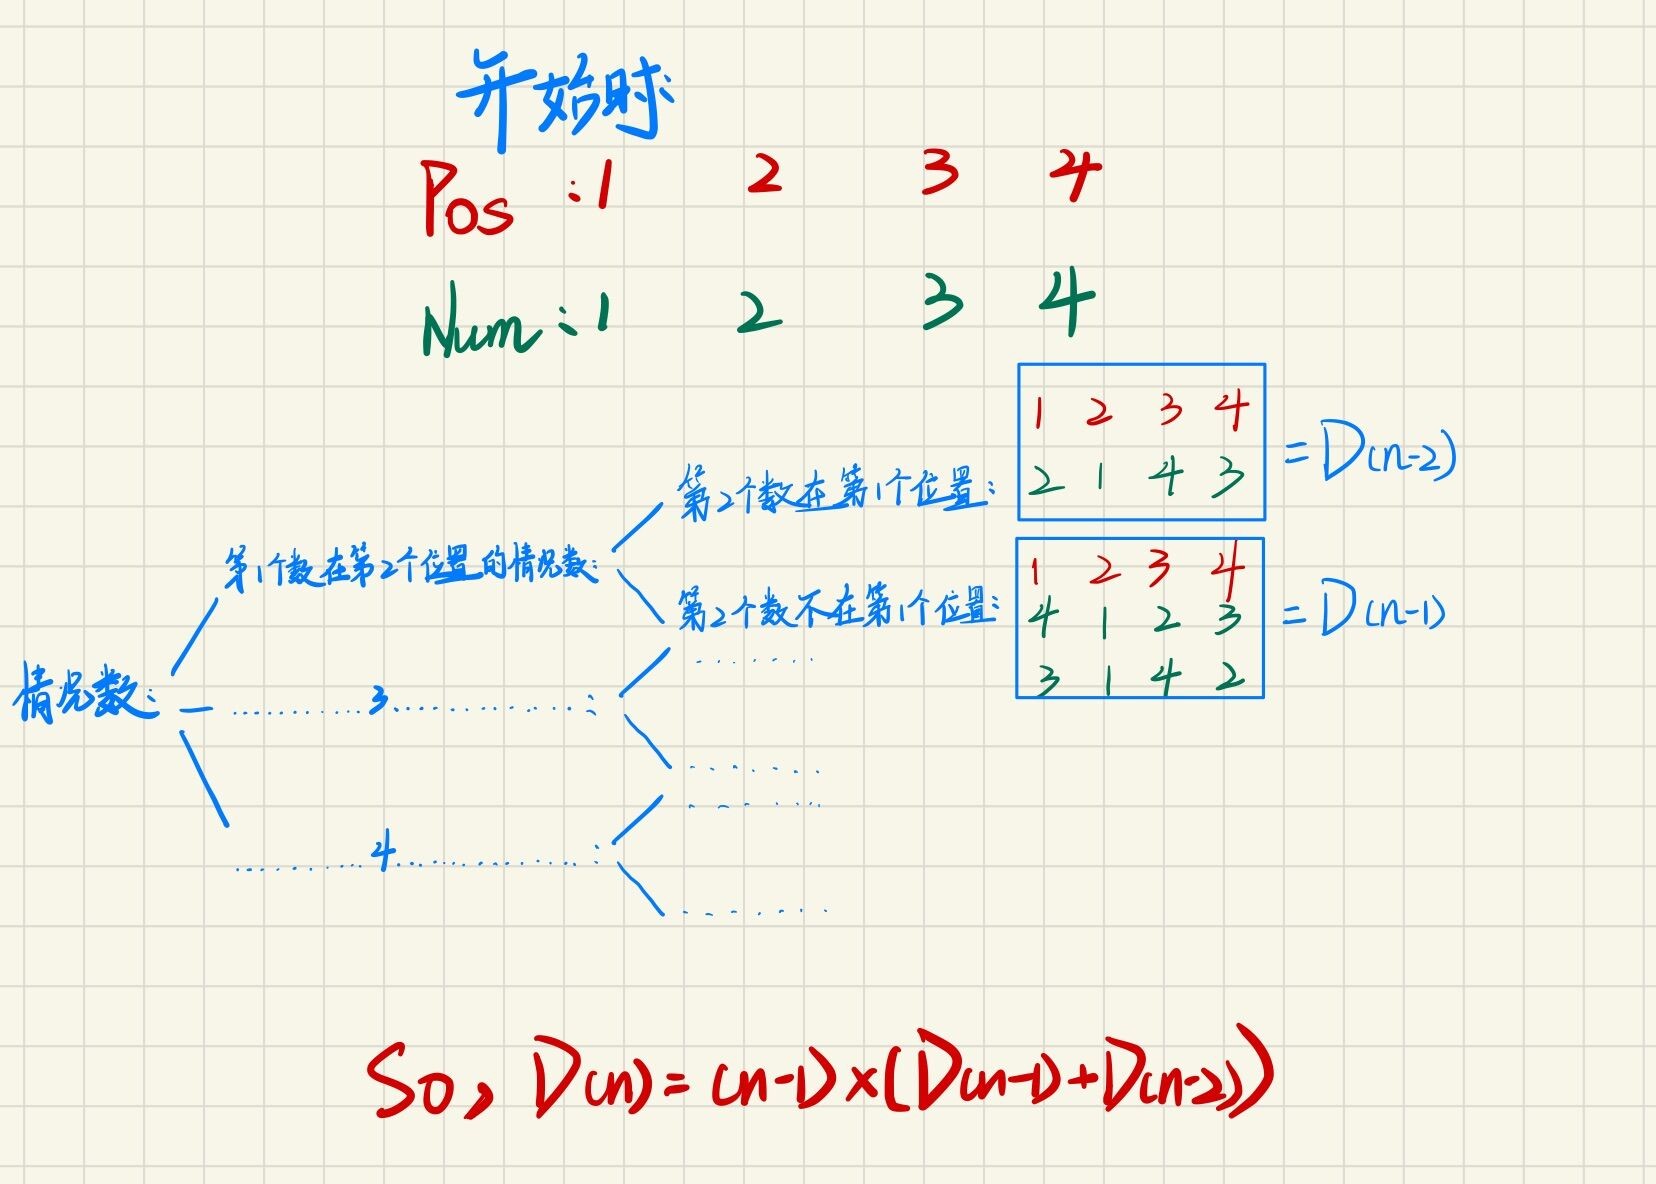 开始时:
Pos:1 2 3 4
Num:1 2 3 4
情况数:
第1个数在第2个位置的情况数:
第2个数在第1个位置:
1 2 3 4
2 1 4 3
=D(n-2)
第2个数不在第1个位置:
1 2 3 4
4 1 2 3
3 1 4 2
=D(n-1)
..........3..........:
..........
..........
..........4..........:
..........
..........
So, D(n)=(n-1)×(D(n-1)+D(n-2))